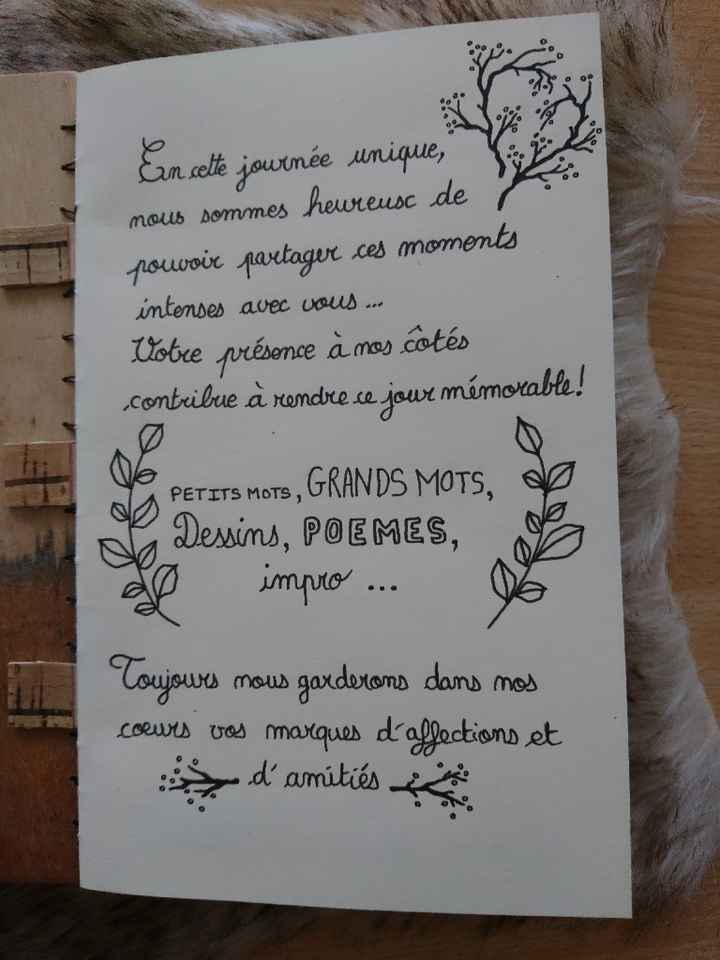 En cette journée unique,
nous sommes heureux de
pouvoir partager ces moments
intenses avec vous ...
Votre présence à nos côtés
contribue à rendre ce jour mémorable!
PETITS MOTS, GRANDS MOTS,
Dessins, POEMES,
impro ...
Toujours nous garderons dans nos
cœurs vos marques d'affections et
d'amitiés